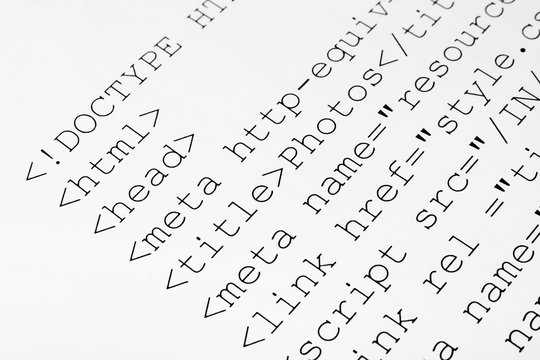 <!DOCTYPE HT
<html>
<head>
<meta http-equiv-
<title>Photos</tit
<meta name="resource
<link href="style.cs
<script src="/IN/
link rel ="ti
name="
na